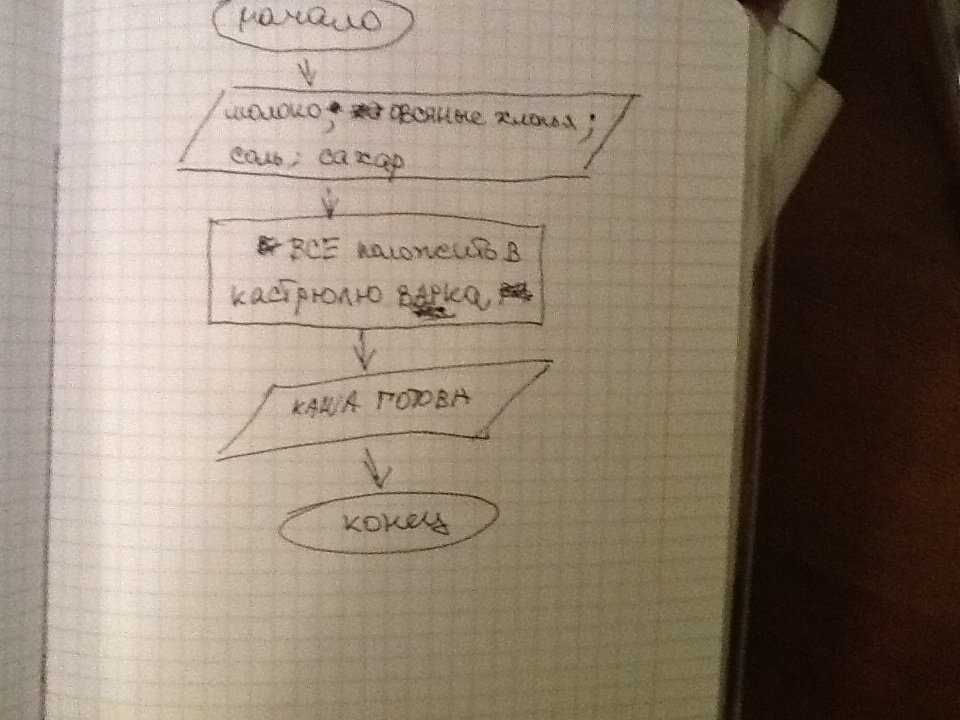 начало
молоко; овсяные хлопья;
соль; сахар
ВСЕ положить в
кастрюлю варка
КАША ГОТОВА
конец